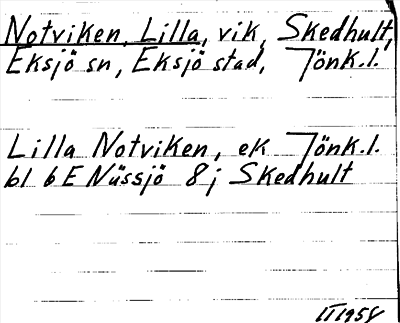 Notviken, Lilla, vik, Skedhult,
Eksjö sn, Eksjö stad, Jönk.l.
Lilla Notviken, ek Jönk.l.
bl 6 E Nässjö 8j Skedhult
II 1958